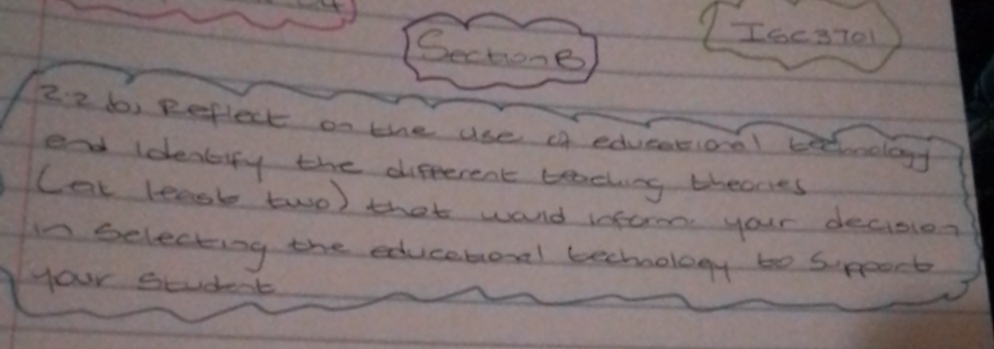 Section B
ISC3701
2.2 b, Reflect on the use of educational technology
and identify the different teaching theories
(at least two) that would inform your decision
in selecting the educational technology to support
your student